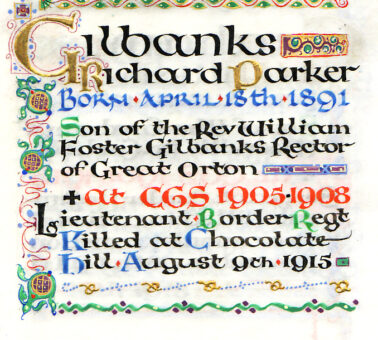 Gilbanks
Richard Parker
Born · April · 18th · 1891
Son of the Rev William
Foster Gilbanks Rector
of Great Orton
+ at CGS 1905·1908
Lieutenant · Border Regt
Killed at Chocolate
Hill · August 9th · 1915